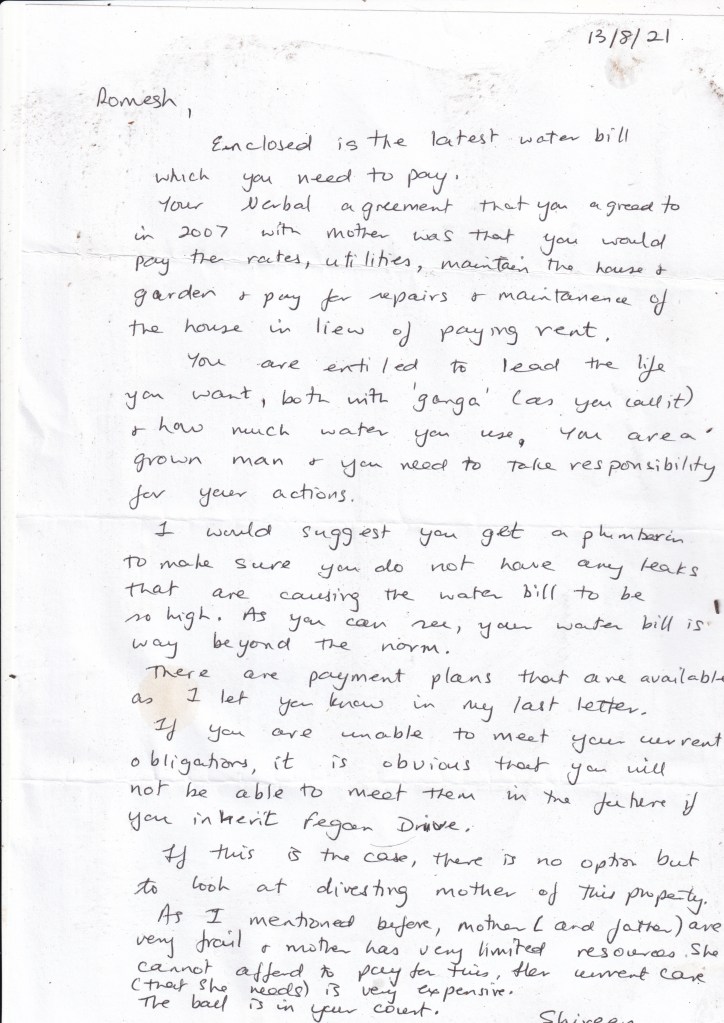 13/8/21
Romesh,
Enclosed is the latest water bill
which you need to pay.
Your Verbal agreement that you agreed to
in 2007 with mother was that you would
pay the rates, utilities, maintain the house &
garden & pay for repairs & maintanence of
the house in liew of paying rent.
You are entiled to lead the life
you want, both with 'ganga' (as you call it)
& how much water you use, You are a
grown man & you need to take responsibility
for your actions.
I would suggest you get a plumber in
to make sure you do not have any leaks
that are causing the water bill to be
so high. As you can see, your water bill is
way beyond the norm.
There are payment plans that are available
as I let you know in my last letter.
If you are unable to meet your current
obligations, it is obvious that you will
not be able to meet them in the future if
you inherit Fegan Drive.
If this is the case, there is no option but
to look at divesting mother of this property.
As I mentioned before, mother (and father) are
very frail & mother has very limited resources. She
cannot afford to pay for this, Her current care
(that she needs) is very expensive.
The ball is in your court.
Shireen